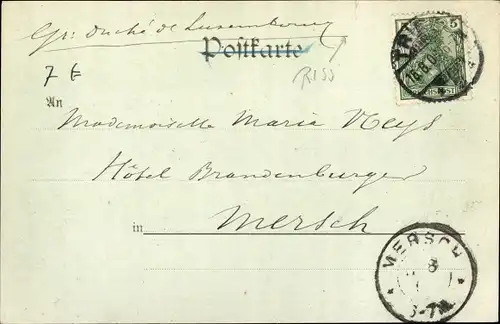 Gr: Duché de Luxembourg
Postkarte
5
7 €
RISS
An
Mademoiselle Maria Neys
Hôtel Brandenburger
in Mersch
MERSCH
8
6-7N